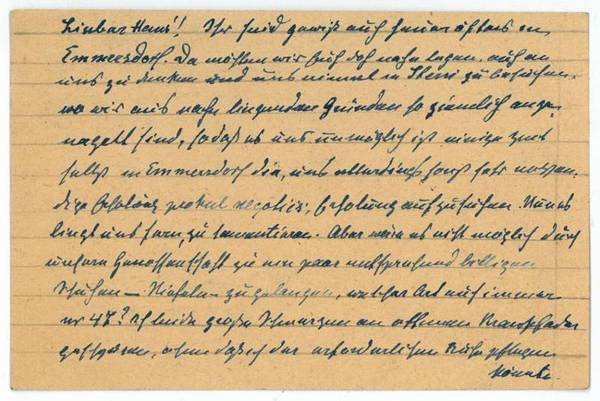 Lieber Hans! Ihr seid gewiß auch heuer öfters in
Emmersdorf. Da möchten wir Euch doch nahe legen, auch an
uns zu denken und uns einmal in zu besuchen,
wo wir aus nahe liegenden Gründen so ziemlich ange-
nagelt sind, sodaß es uns unmöglich ist, einige Zeit
selbst in Emmersdorf die, uns allerdings sonst sehr notwen-
dige Erholung procul negotiis, Erholung aufzusuchen. Nun es
liegt uns fern, zu lamentieren. Aber wäre es nicht möglich durch
unsern Genossenschaft zu ein paar entsprechend billigen
Schuhen — Stiefeln — zu gelangen, welcher Art auch immer
nr 47? Ich leide große Schmerzen an offenen Krampfader
geschwüren, ohne daß ich der erforderlichen Ruhe pflegen
könnte.